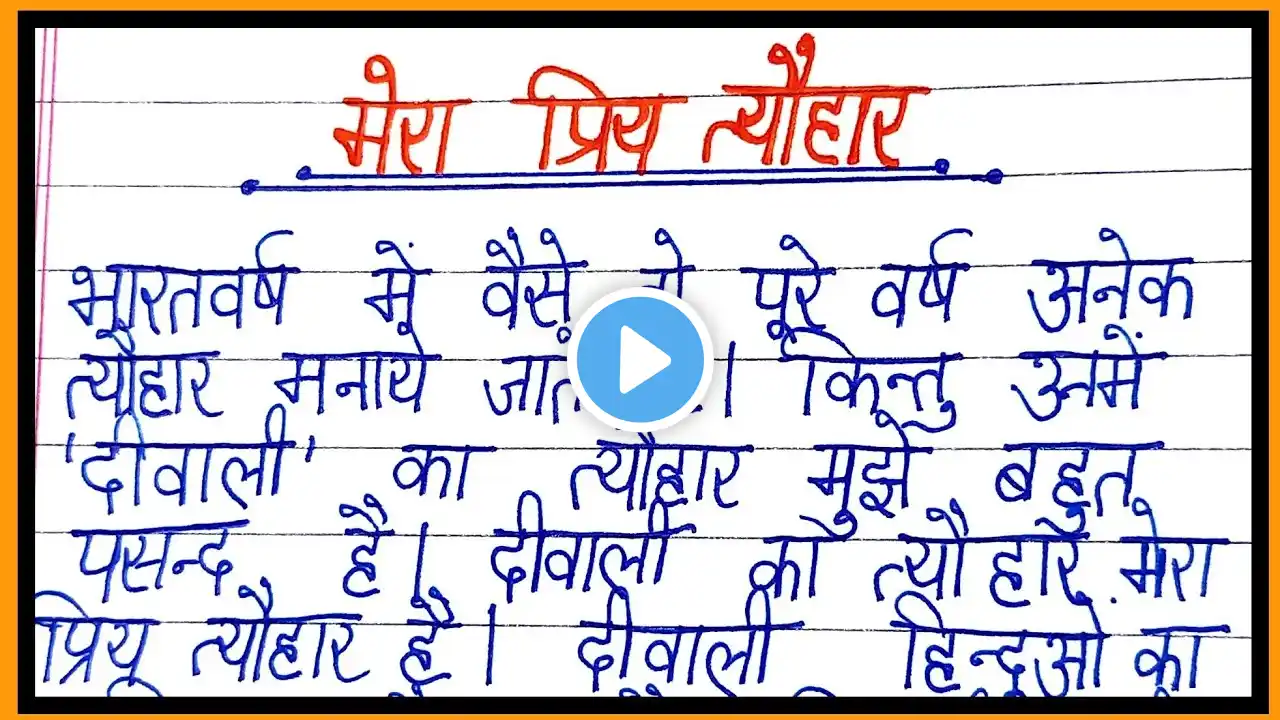 मेरा प्रिय त्यौहार
भारतवर्ष में वैसे पूरे वर्ष अनेक
त्यौहार मनाये । किन्तु उनमें
'दीवाली' का त्यौहार मुझे बहुत
पसन्द है। दीवाली का त्यौहार मेरा
प्रिय त्यौहार है। दीवाली हिन्दुओ का